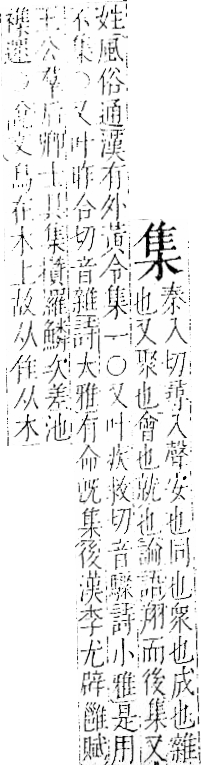 集
秦入切尋入聲安也同也衆也成也雜
也又聚也會也就也論語翔而後集又
姓風俗通漢有外黃令集一〇又叶疾救切音驟詩小雅是用
不集〇又叶昨合切音雜詩大雅有命旣集後漢李尤辟雝賦
王公羣后卿士具集攢羅鱗次差池
襍遝〇說文鳥在木上故从隹从木